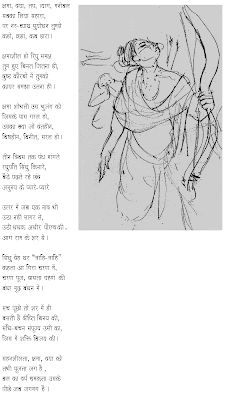 क्षमा, दया, तप, त्याग, मनोबल
सबका लिया सहारा,
पर नर-व्याघ्र सुयोधन तुमसे
कहो, कहां, कब हारा।
क्षमाशील हो रिपु समक्ष
तुम हुए विनत जितना ही,
दुष्ट कौरवों ने तुमको
कायर समझा उतना ही।
क्षमा शोभती उस भुजंग को
जिसके पास गरल हो,
उसका क्या जो दंतहीन,
विषहीन, विनीत, सरल हो।
तीन दिवस तक पंथ मांगते
रघुपति सिंधु किनारे,
बैठे पढ़ते रहे छंद
अनुनय के प्यारे-प्यारे
उत्तर में जब एक नाद भी
उठा नहीं सागर से,
उठी धधक अधीर पौरुष की,
आग राम के शर से।
सिंधु देह धर "त्राहि-त्राहि"
कहता आ गिरा शरण में,
चरण पूज, दासता ग्रहण की
बंधा मूढ़ बंधन में।
सच पूछो तो शर में ही
बसती है दीप्ति विनय की,
संधि-वचन संपूज्य उसी का,
जिस में शक्ति विजय की।
सहनशीलता, क्षमा, दया को
तभी पूजता जग है,
बल का दर्प चमकता उसके
पीछे जब जगमग है।